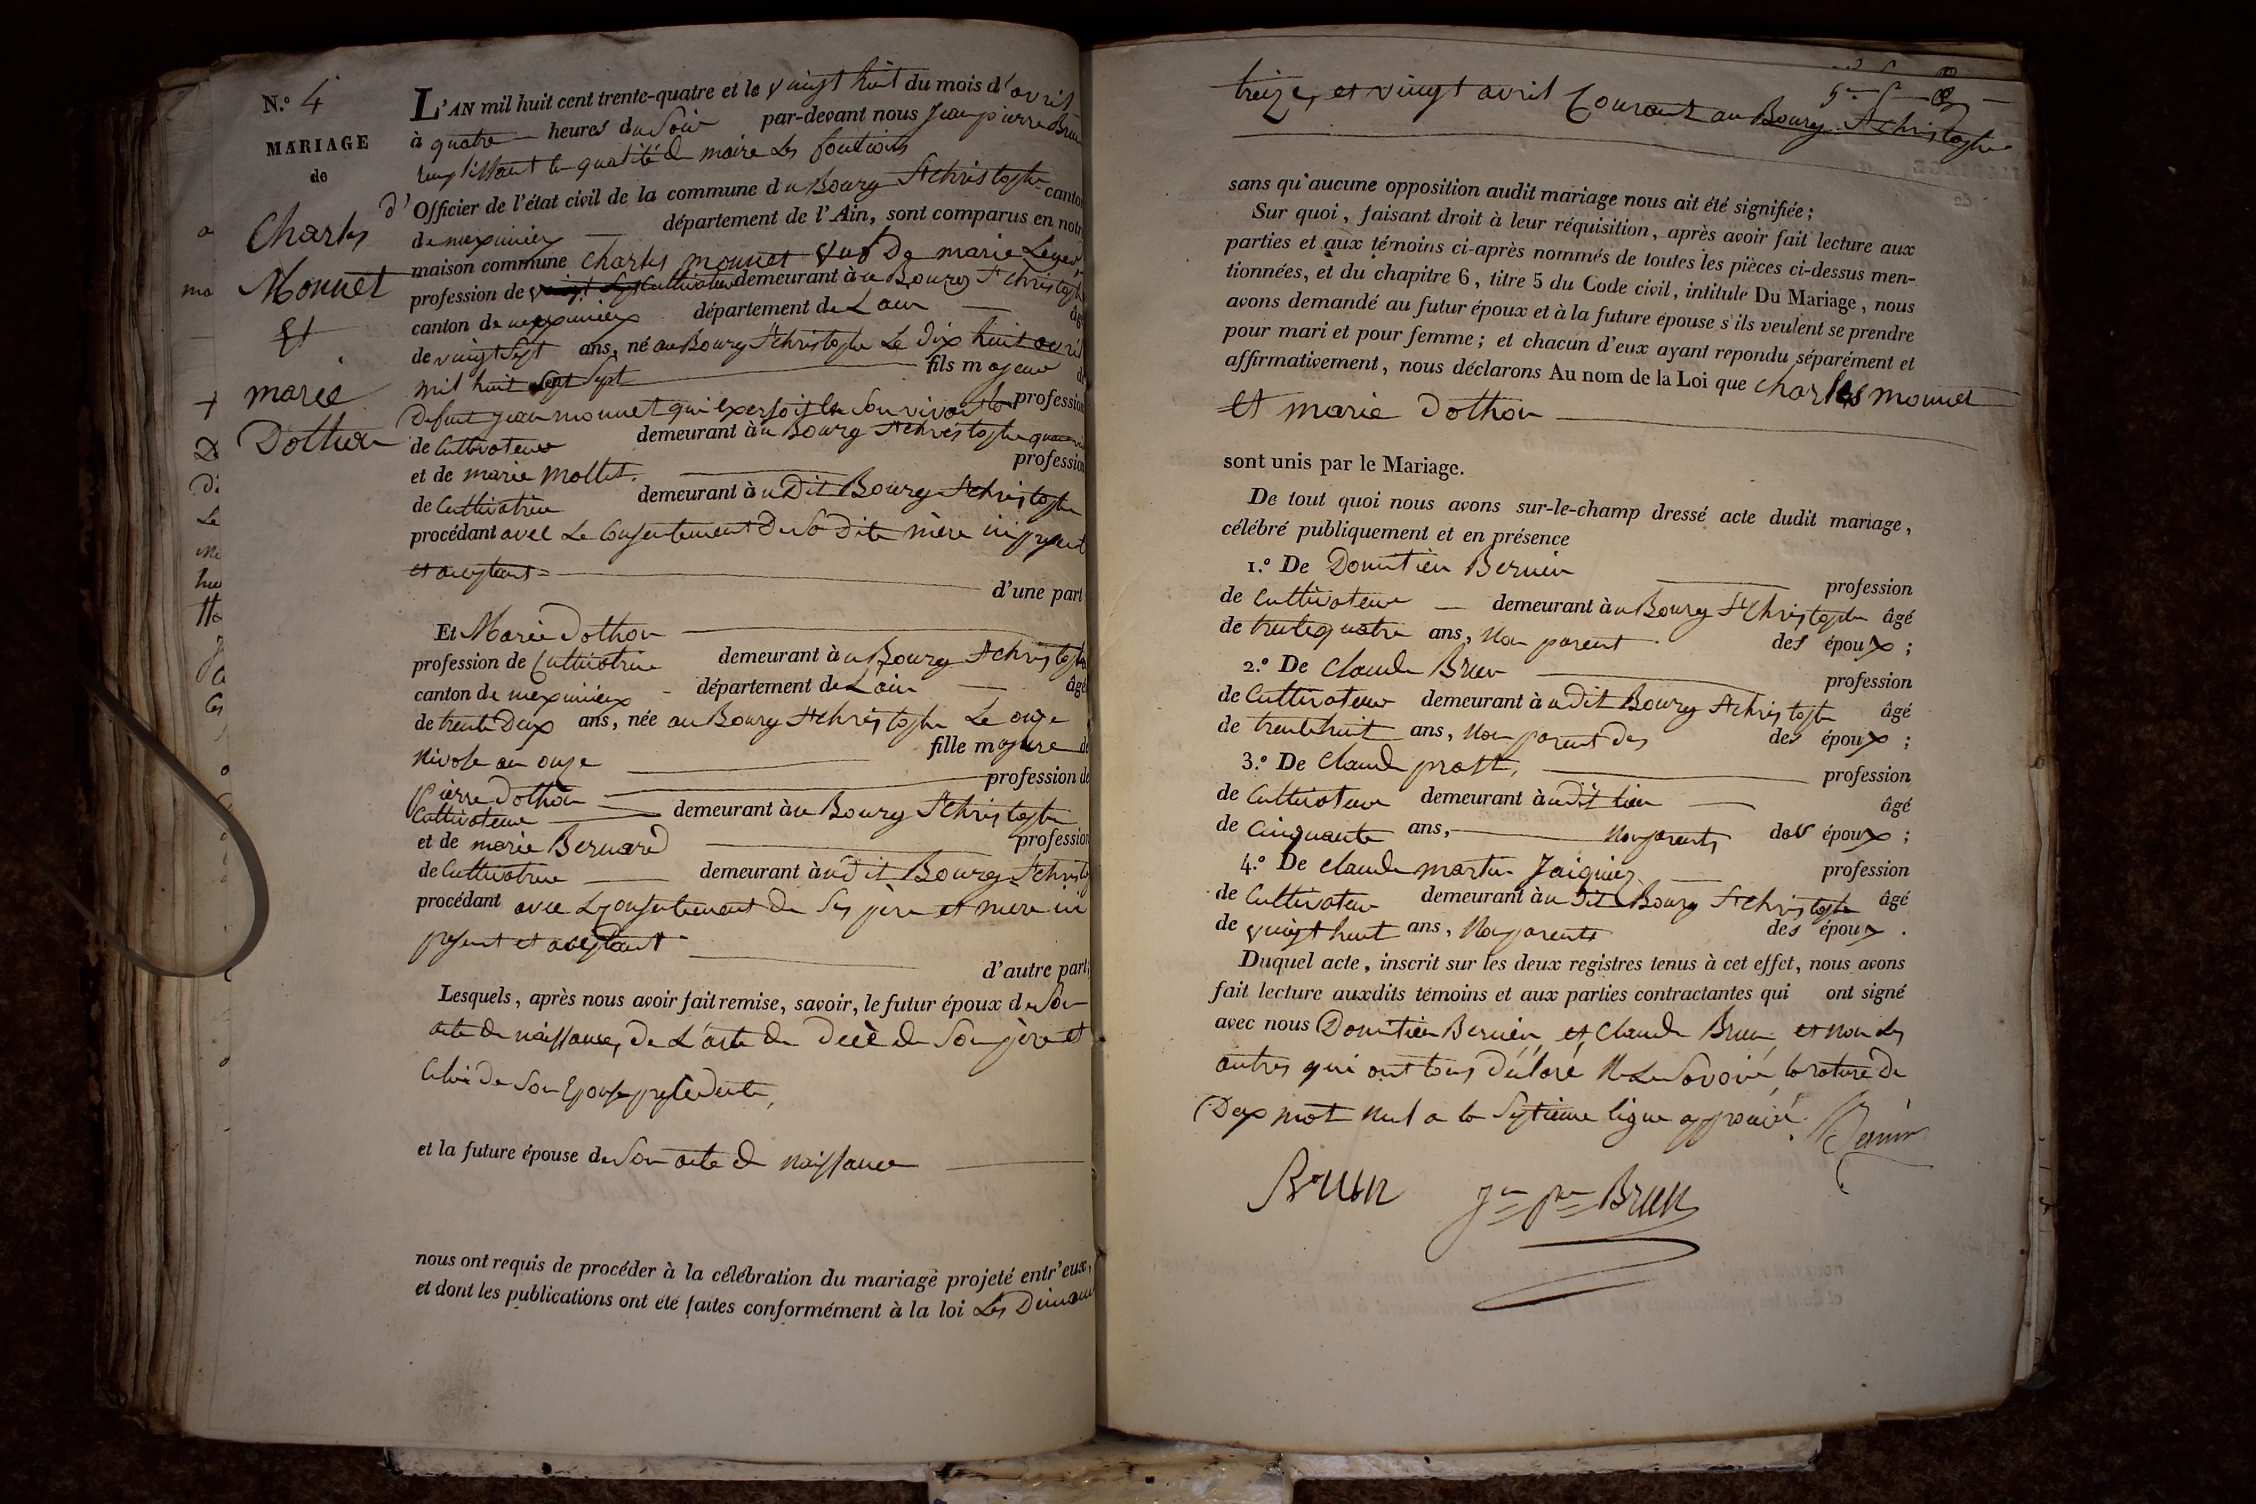 N.º 4
MARIAGE
de
Charles
Monnet
Et
marie
Dothon
L'AN mil huit cent trente-quatre et le vingt huit du mois d'avril
à quatre heures du Soir par-devant nous Jean pierre Brun
remplissant la qualité de maire Les fonctions
d'Officier de l'état civil de la commune du Bourg St christophe canton
de meximieux département de l'Ain, sont comparus en notre
maison commune Charles monnet veuf De marie
profession de cultivateur demeurant à u Bourg St Christophe
canton de meximieux département de L'ain âgé
de vingt Sept ans, né au Bourg St christophe Le Dix huit avril
mil huit cent Sept fils majeur de
Defunt jean monnet qui exersoit en Son vivant la profession
de Cultivateur demeurant à u Bourg St christophe
et de marie mollet. profession
de Cultivatrice demeurant à u Dit Bourg St christophe
procédant avec Le Consentement De Sa Dite mère ici present
et aceptant d'une part
Et Marie dothon
profession de Cultivatrice demeurant à u Bourg St christophe
canton de meximieux département de L'ain âgée
de trente Deux ans, née au Bourg St christophe Le onze
Nivose an onze fille majeure de
Pierre Dothon profession de
Cultivateur demeurant à u Bourg St christophe
et de marie Bernard profession
de Cultivatrice demeurant à u Dit Bourg St christophe
procédant avec Le Consentement de Ses père et mère ici
present et aceptant
d'autre part;
Lesquels, après nous avoir fait remise, savoir, le futur époux de Son
acte de naissance, De L'acte de Décè de Son père et
Celui De Son Epouse précédente,
et la future épouse de Son acte de Naissance
nous ont requis de procéder à la célébration du mariage projeté entr'eux,
et dont les publications ont été faites conformément à la loi Les Dimanches
treize, et vingt avril Courant au Bourg St christophe
sans qu'aucune opposition audit mariage nous ait été signifiée;
Sur quoi, faisant droit à leur réquisition, après avoir fait lecture aux
parties et aux témoins ci-après nommés de toutes les pièces ci-dessus men-
tionnées, et du chapitre 6, titre 5 du Code civil, intitulé Du Mariage, nous
avons demandé au futur époux et à la future épouse s'ils veulent se prendre
pour mari et pour femme; et chacun d'eux ayant repondu séparément et
affirmativement, nous déclarons Au nom de la Loi que Charles monnet
Et marie Dothon
sont unis par le Mariage.
De tout quoi nous avons sur-le-champ dressé acte dudit mariage,
célébré publiquement et en présence
1.º De Domitien Bernin profession
de Cultivateur demeurant à u Bourg St Christophe âgé
de trente quatre ans, Non parent des époux;
2.º De Claude Brun profession
de Cultivateur demeurant à u Dit Bourg St christophe âgé
de trente huit ans, Non parent des des époux;
3.º De Claude prost, profession
de Cultivateur demeurant à u dit lieu âgé
de Cinquante ans, Non parents des époux;
4.º De Claude martin Jaiquier profession
de Cultivateur demeurant à u Dit Bourg St christophe âgé
de vingt huit ans, Non parents des époux.
Duquel acte, inscrit sur les deux registres tenus à cet effet, nous avons
fait lecture auxdits témoins et aux parties contractantes qui ont signé
avec nous Domitien Bernin, et Claude Brun, et non les
autres qui ont tous Déclaré Ne Le Savoir la rature De
Deux mot Nul a la Septieme ligne approuvé. Bernin
Brun Jn pre Brun